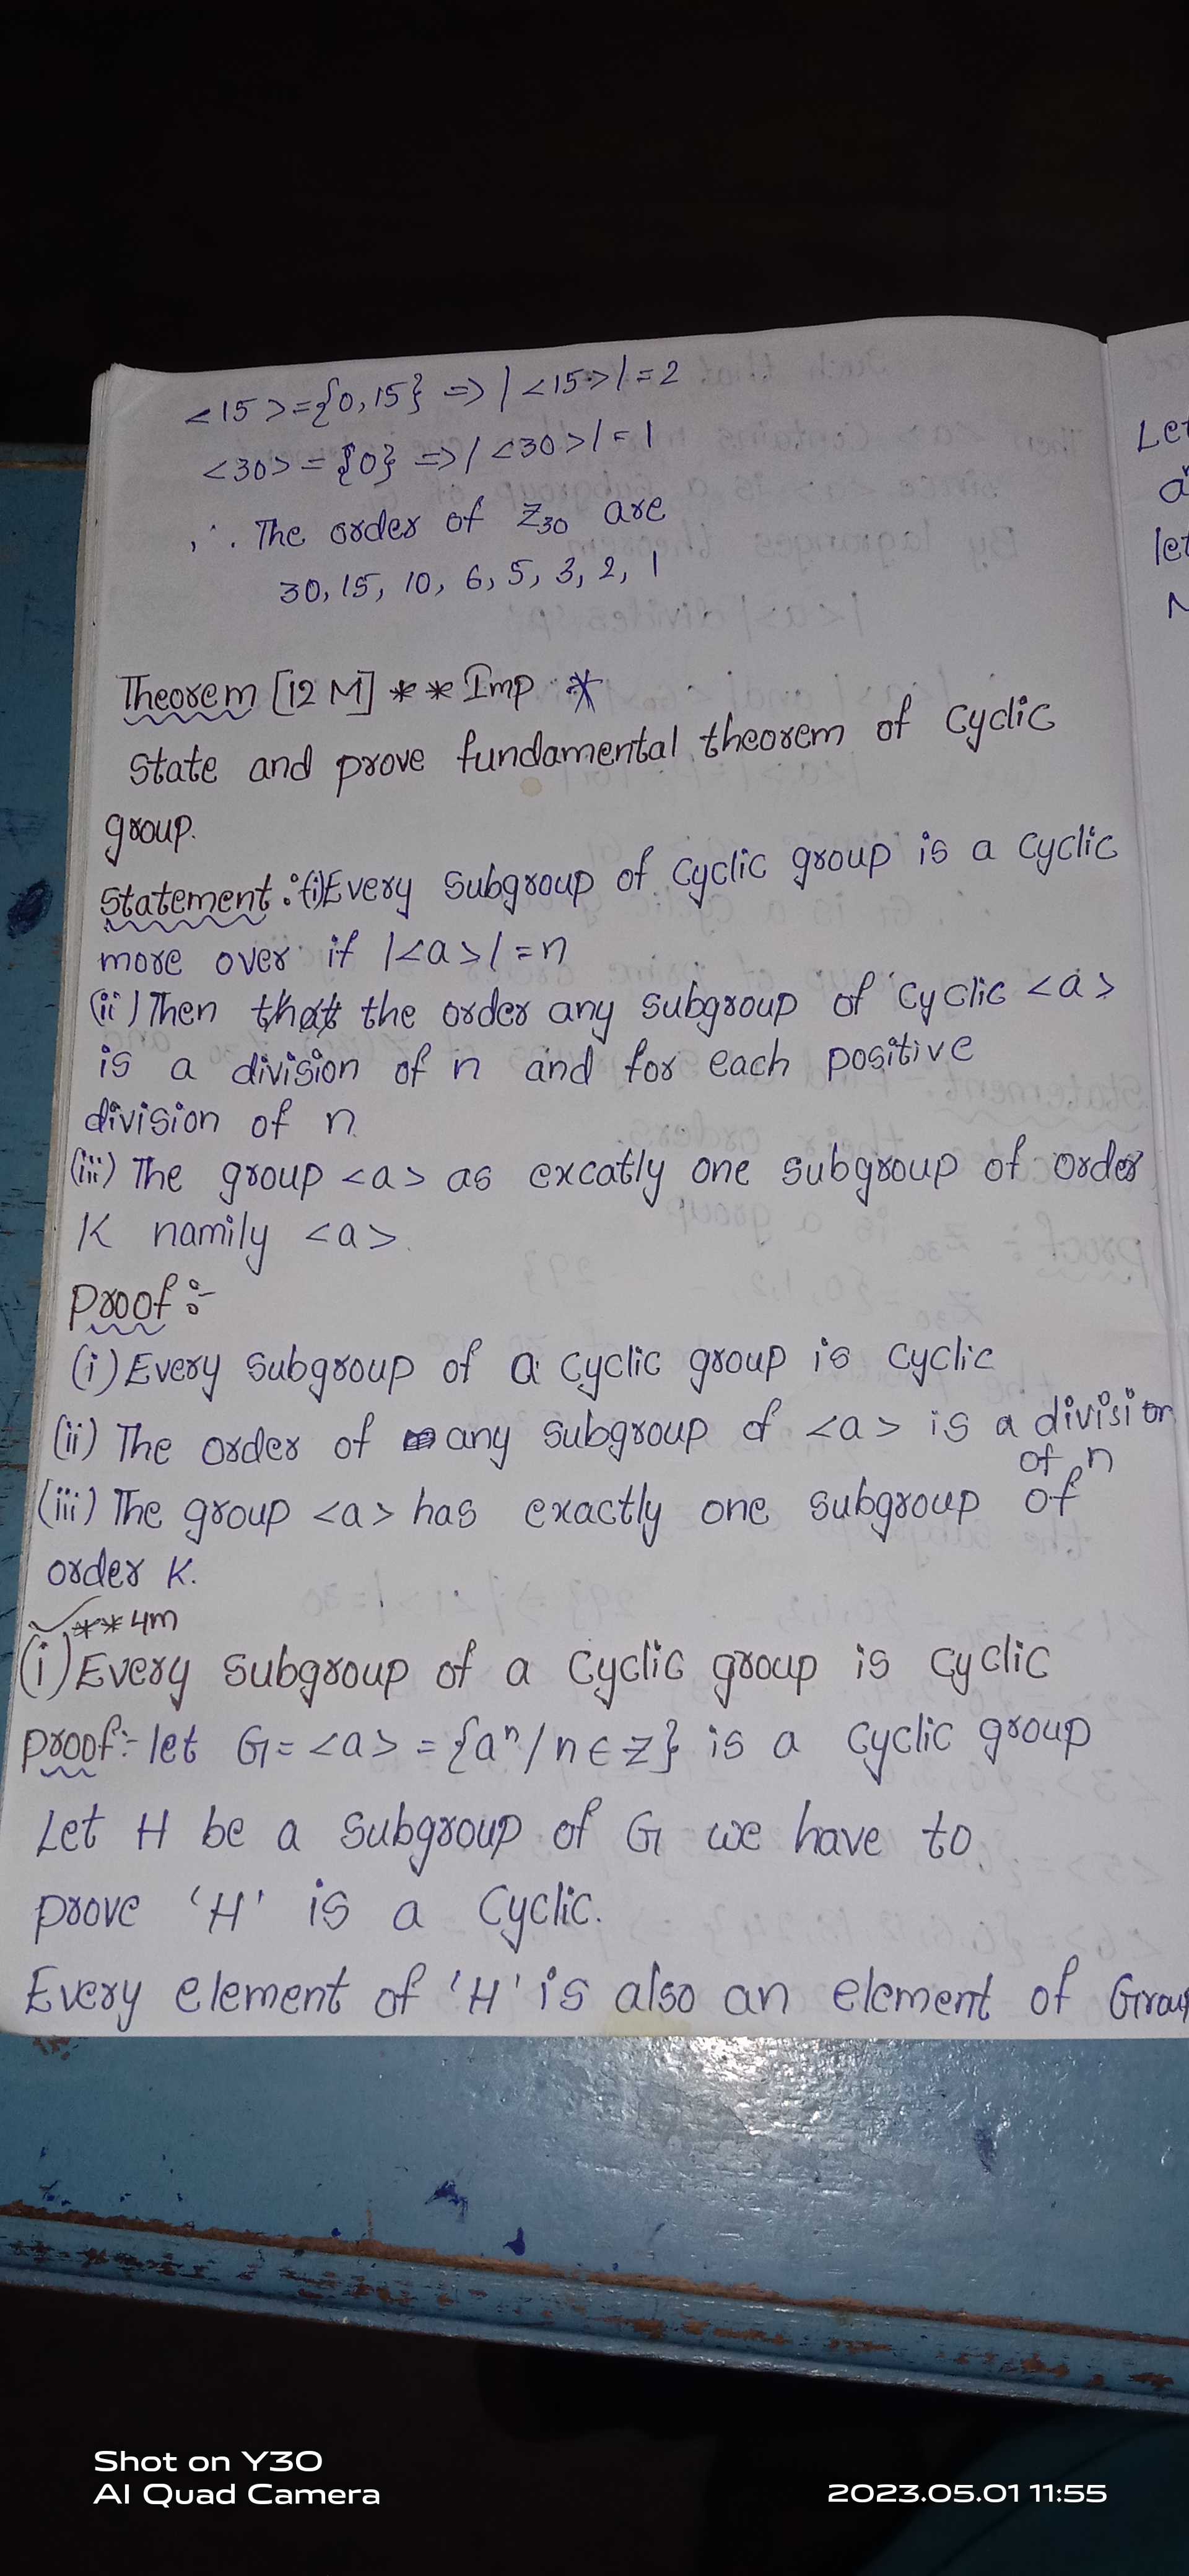 <15>={0,15} => |<15>|=2
<30> = {0} => |<30>|=1
∴ The order of Z30 are
30, 15, 10, 6, 5, 3, 2, 1
Theorem [12 M] ** Imp *
State and prove fundamental theorem of cyclic
group.
Statement:(i)Every subgroup of cyclic group is a cyclic
more over if |<a>|=n
(ii) Then that the order any subgroup of cyclic <a>
is a division of n and for each positive
division of n
(iii) The group <a> as excatly one subgroup of order
K namily <a>.
Proof :-
(i) Every subgroup of a cyclic group is cyclic
(ii) The order of any subgroup of <a> is a division
of n
(iii) The group <a> has exactly one subgroup of
order K.
** 4m
(i) Every subgroup of a cyclic group is cyclic
Proof:- let G = <a> = {aⁿ/n∈z} is a cyclic group
Let H be a subgroup of G we have to
prove 'H' is a cyclic.
Every element of 'H' is also an element of Group
Let
let
Shot on Y30
AI Quad Camera
2023.05.01 11:55